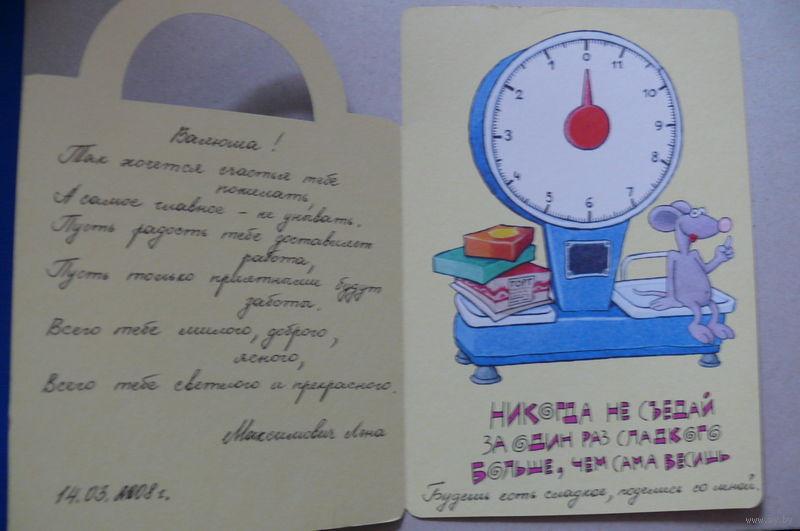 Валюша!
Так хочется счастья тебе
пожелать,
А самое главное - не унывать.
Пусть радость тебе доставляет
работа,
Пусть только приятными будут
заботы.
Всего тебе милого, доброго,
ясного,
Всего тебе светлого и прекрасного.
Максимович Яна
14.03.2008г.
0
1
11
2
10
3
9
4
8
5
7
6
ТОРТ
НИКОГДА НЕ СЪЕДАЙ
ЗА ОДИН РАЗ СЛАДКОГО
БОЛЬШЕ, ЧЕМ САМА ВЕСИШЬ
Будешь есть сладкое, поделись со мной.